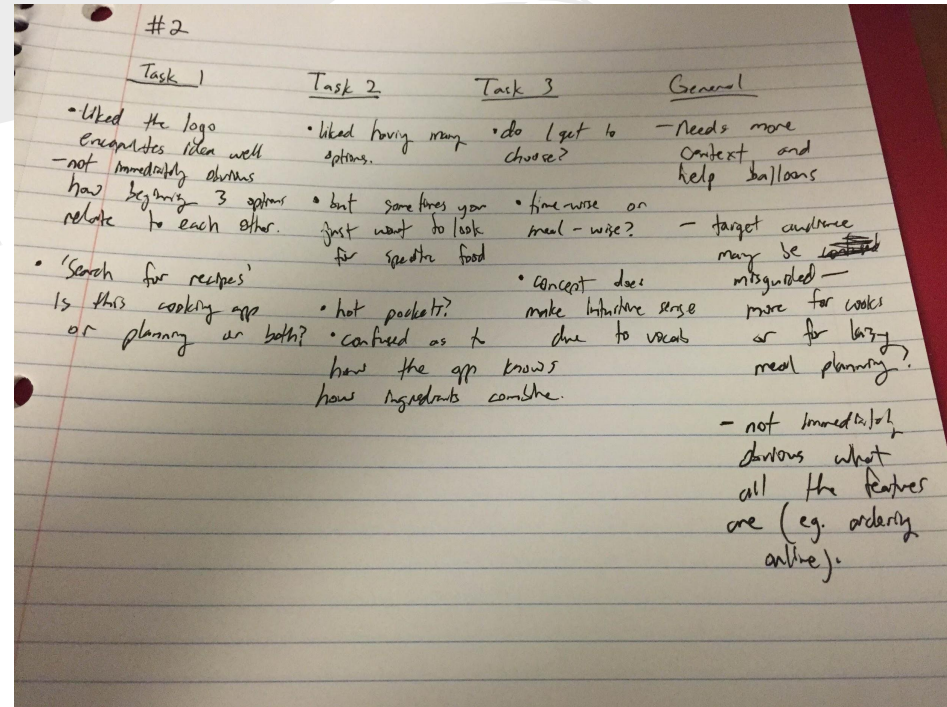 #2
Task 1
• liked the logo
encapsulates idea well
- not immediately obvious
how beginning 3 options
relate to each other.
• 'Search for recipes'
Is this cooking app
or planning or both?
Task 2
• liked having many
options.
• but sometimes you
just want to look
for specific food
• hot pockets?
• confused as to
how the app knows
how ingredients combine.
Task 3
• do I get to
choose?
• time-wise or
meal-wise?
• concept does
make intuitive sense
due to vocab
General
- Needs more
context and
help balloons
- target audience
may be
misguided -
more for cooks
or for lazy
meal planning?
- not immediately
obvious what
all the features
are (eg. ordering
online).